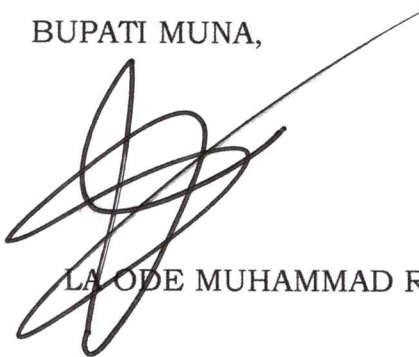 BUPATI MUNA,
LA ODE MUHAMMAD R